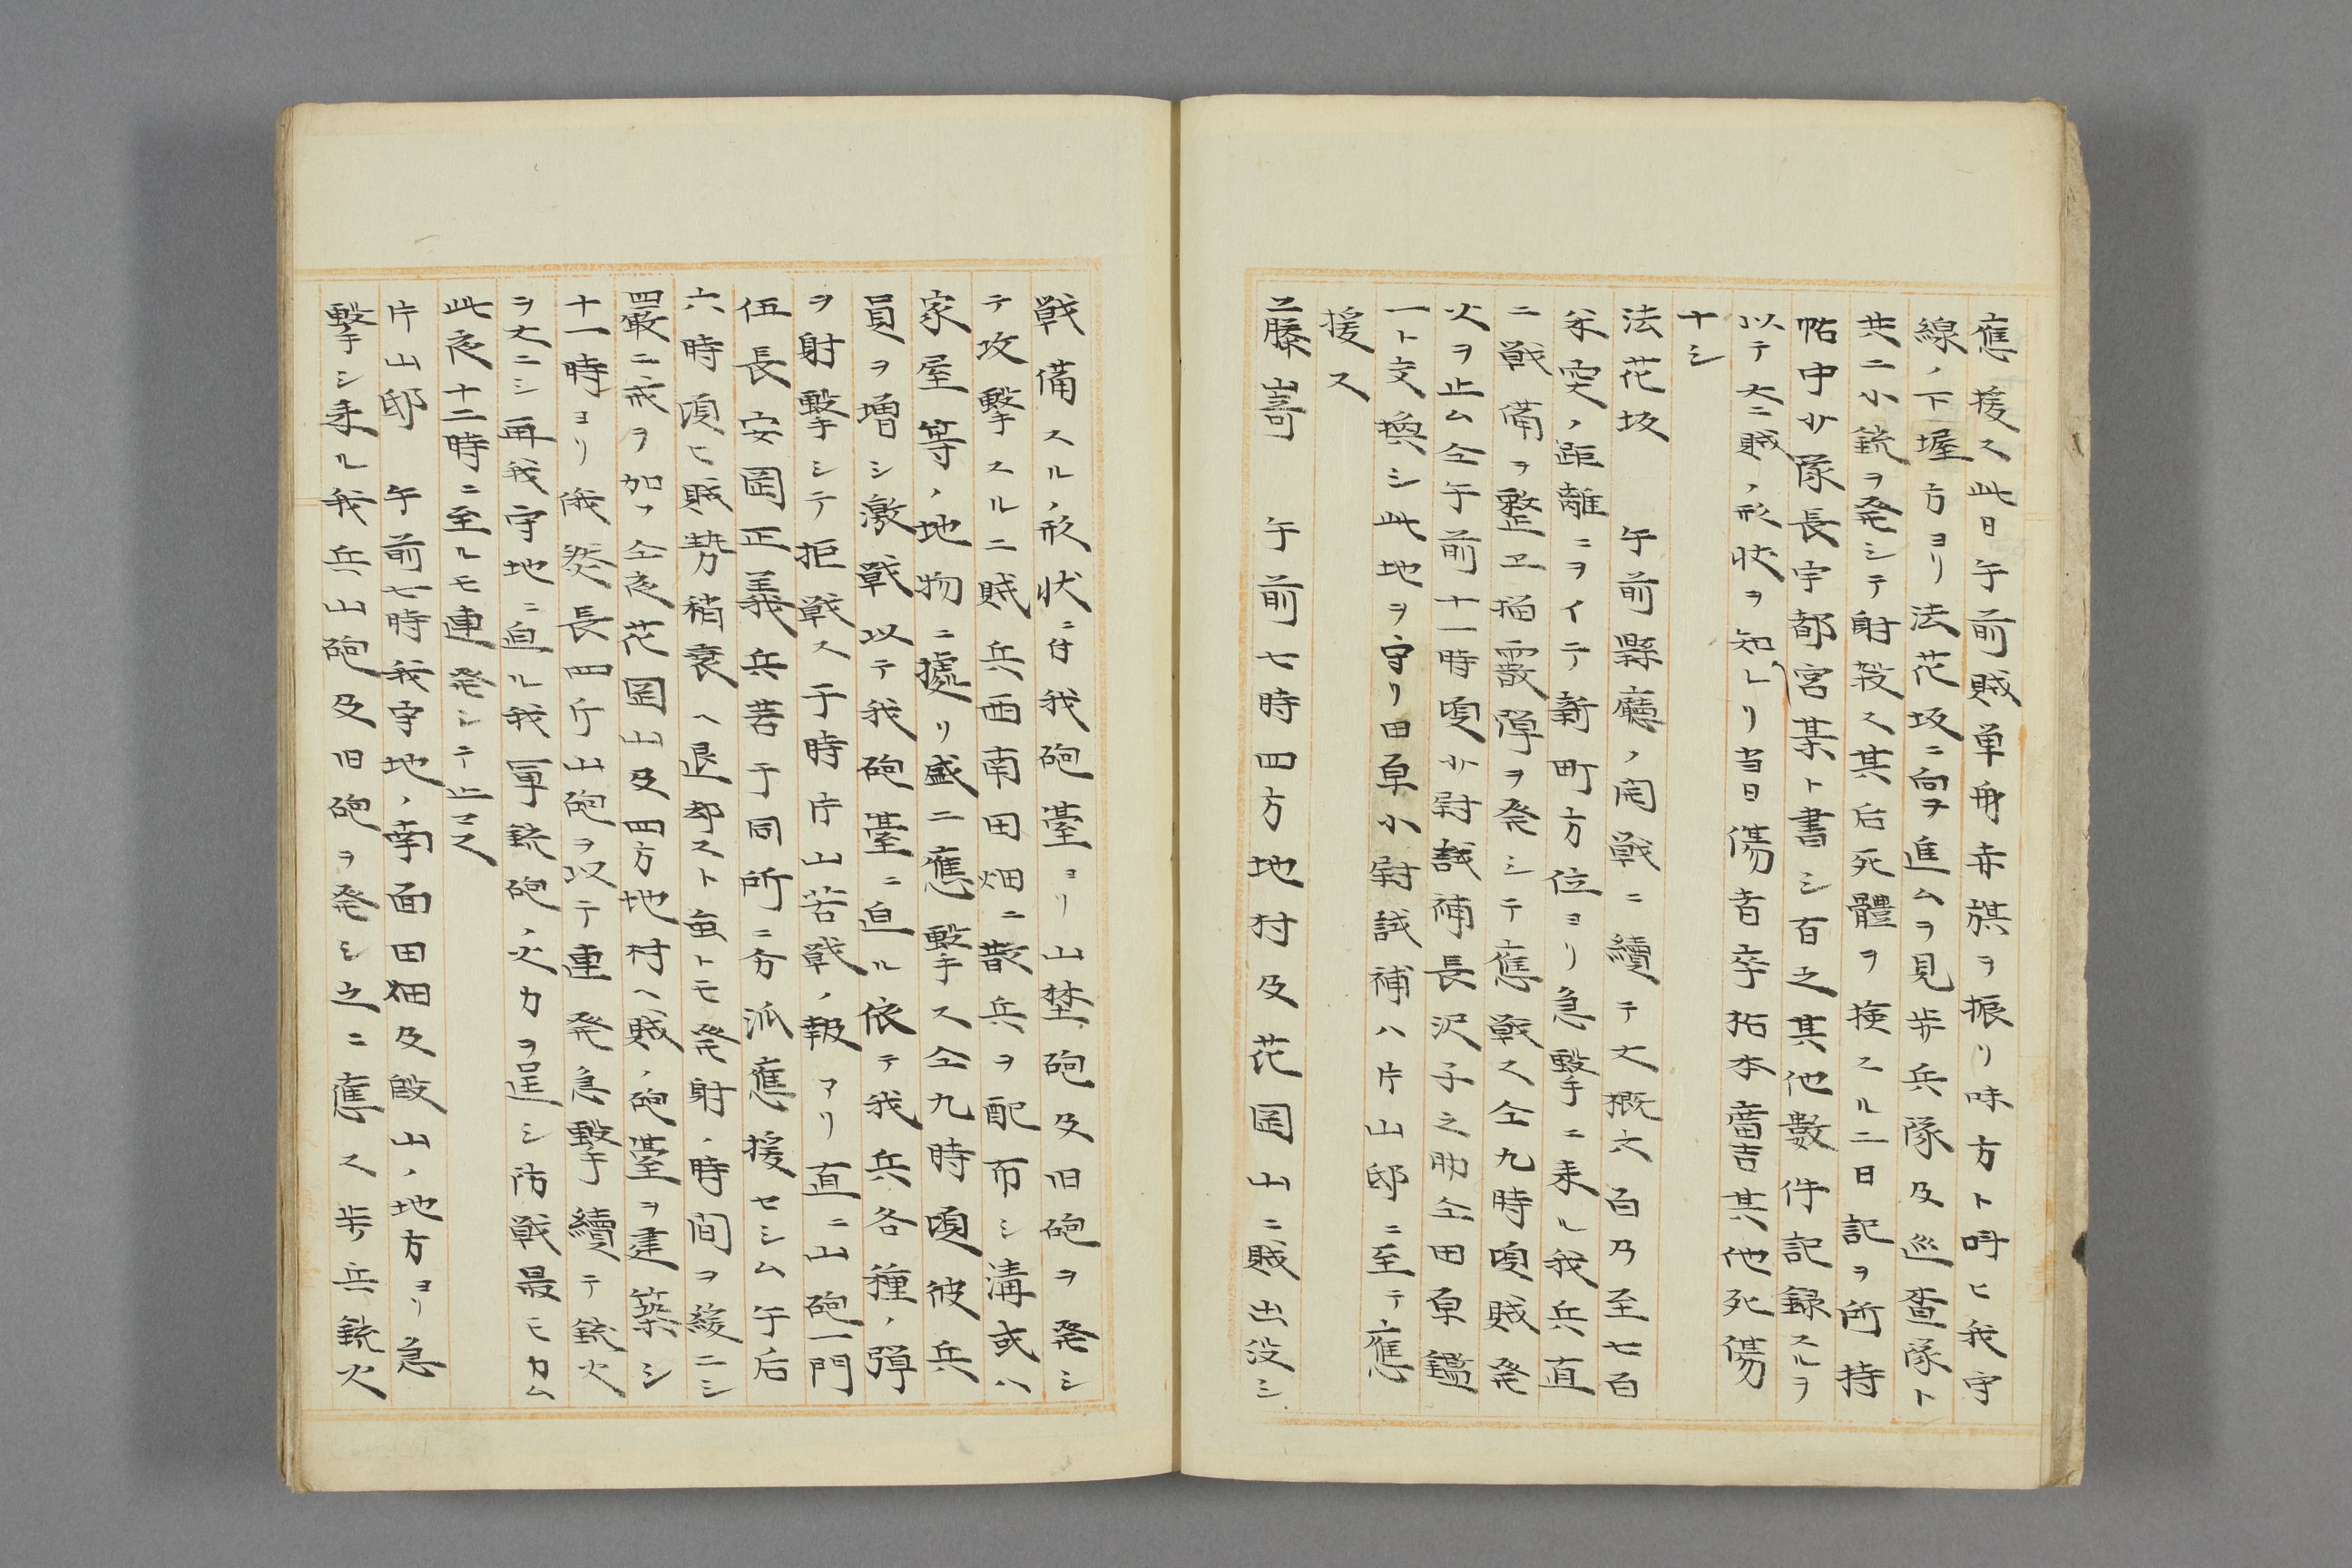 應援ス此日午前賊単身赤旗ヲ振リ味方ト呌ヒ我守
線ノ下堀方ヨリ法花坂ニ向ヲ進ムヲ見歩兵隊及巡査隊ト
共ニ小銃ヲ発シテ射殺ス其后死體ヲ検スルニ日記ヲ所持
帖中小隊長宇都宮某ト書シ百之其他數件記録スルヲ
以テ大ニ賊ノ形状ヲ知レリ当日傷者卒拓本富吉其他死傷
ナシ
法花坂　午前縣廳ノ開戦ニ續テ大概六百乃至七百
米突ノ距離ニヲイテ新町方位ヨリ急撃ニ来ル我兵直
ニ戦備ヲ整ヱ榴霰弾ヲ発シテ應戦ス仝九時頃賊発
火ヲ止ム仝午前十一時頃少尉試補長沢子之助仝田原鑑
一ト交換シ此地ヲ守リ田原少尉試補ハ片山邸ニ至テ應
援ス
藤嵜　午前七時四方地村及花岡山ニ賊出没シ
戦備スルノ形状ニ付我砲臺ヨリ山埜砲及旧砲ヲ発シ
テ攻撃スルニ賊兵西南田畑ニ散兵ヲ配布シ溝或ハ
家屋等ノ地物ニ據リ盛ニ應撃ス仝九時頃彼兵
員ヲ増シ激戦以テ我砲臺ニ迫ル依テ我兵各種ノ弾
ヲ射撃シテ拒戦ス于時片山苦戦ノ報アリ直ニ山砲一門
伍長安岡正義兵若干同所ニ分派應援セシム午后
六時頃ヒ賊勢稍衰ヘ退却スト雖トモ発射ノ時間ヲ緩ニシ
嚴ニ戒ヲ加フ仝夜花岡山及四方地村ヘ賊ノ砲臺ヲ建築シ
十一時ヨリ俄然長四斤山砲ヲ以テ連発急撃續テ銃火
ヲ大ニシ再我守地ニ迫ル我軍銃砲ノ火力ヲ逞シ防戦最モカム
此夜十二時ニ至ルモ連発シテ止マス
片山邸　午前七時我守地ノ南面田畑及段山ノ地方ヨリ急
撃シ来ル我兵山砲及旧砲ヲ発シ之ニ應ス歩兵銃火